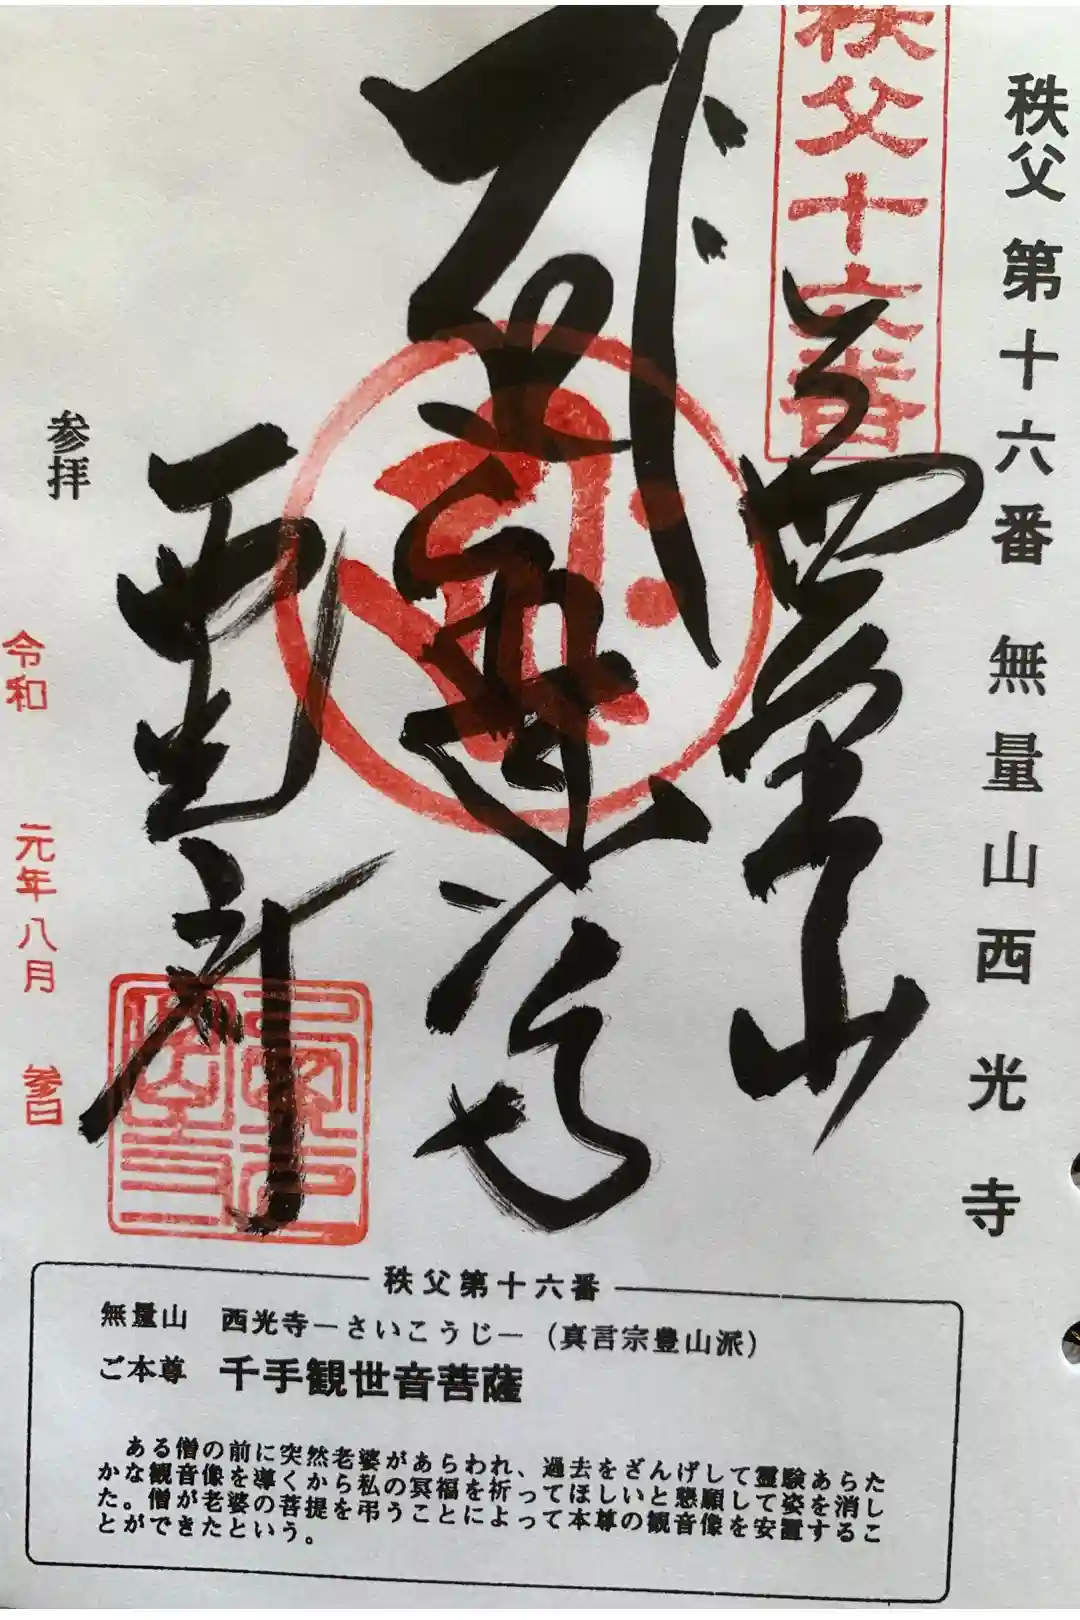 秩父第十六番 無量山西光寺
秩父十六番
無量山
西光寺
参拝
令和 元年八月 参日
秩父第十六番
無量山 西光寺―さいこうじ―(真言宗豊山派)
ご本尊 千手観世音菩薩
ある僧の前に突然老婆があらわれ、過去をざんげして霊験あらた
かな観音像を導くから私の冥福を祈ってほしいと懇願して姿を消し
た。僧が老婆の菩提を弔うことによって本尊の観音像を安置するこ
とができたという。